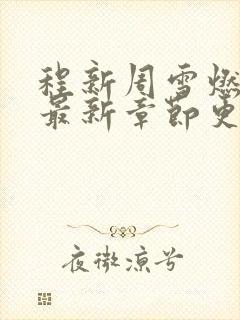 程新周雪燃
最新章节更
夜微凉兮